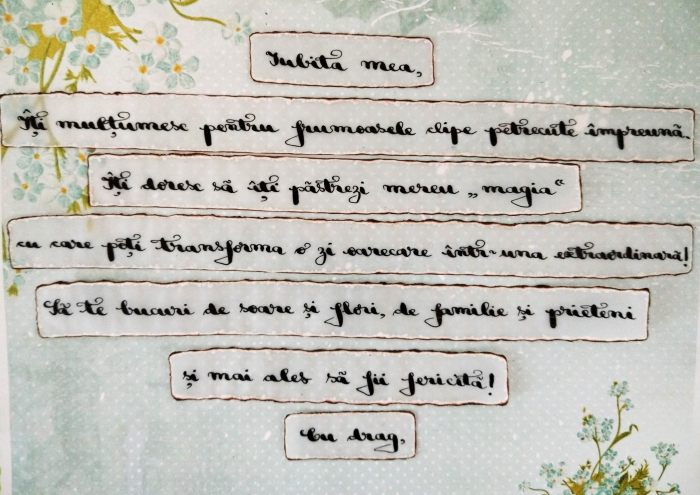 Iubita mea,
Îți mulțumesc pentru frumoasele clipe petrecute împreună.
Îți doresc să îți păstrezi mereu „magia“
cu care poți transforma o zi oarecare într-una extraordinară!
Să te bucuri de soare și flori, de familie și prieteni
și mai ales să fii fericită!
Cu drag,